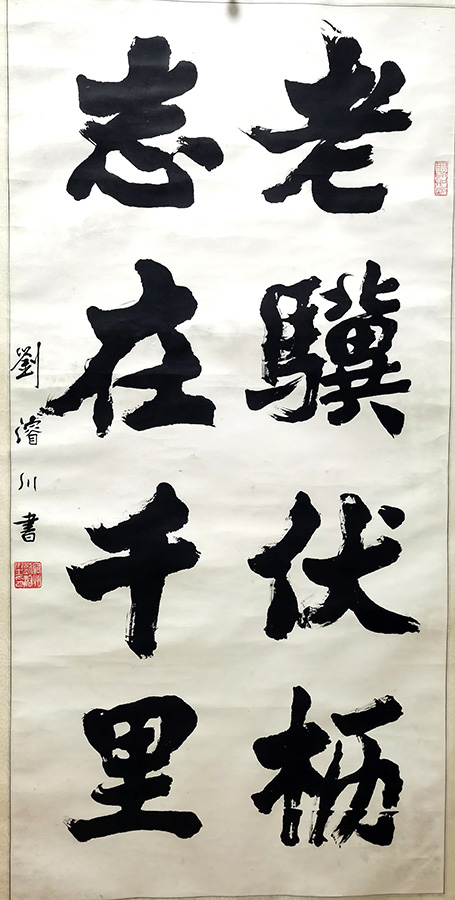 老驥伏枥
志在千里
劉濬川書